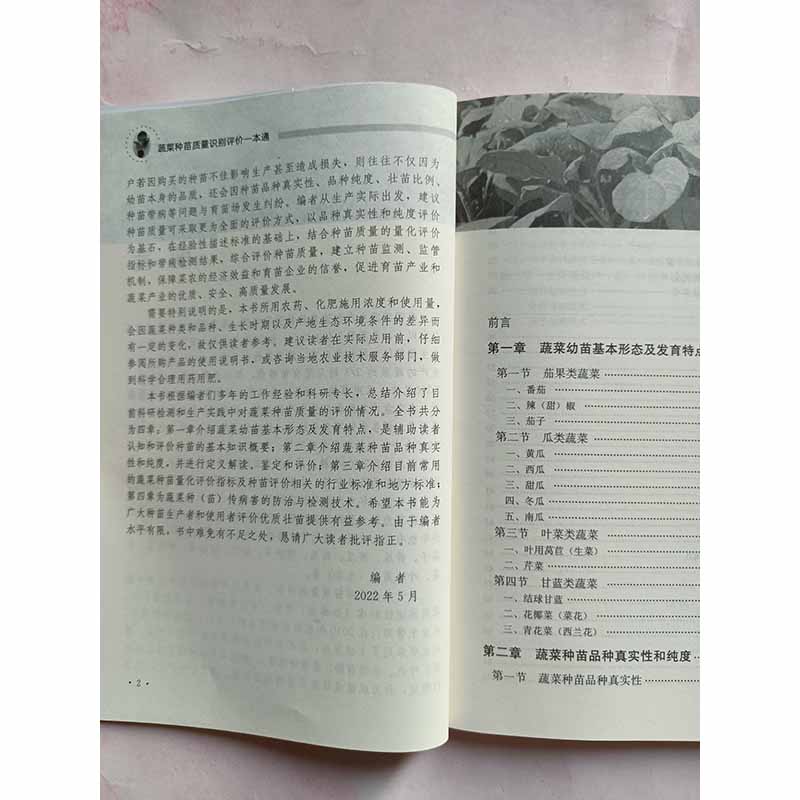 蔬菜种苗质量识别评价一本通
户若因购买的种苗不佳影响生产甚至造成损失，则往往不仅因为
幼苗本身的品质，还会因种苗品种真实性、品种纯度、壮苗比例、
种苗带病等问题与育苗场发生纠纷。编者从生产实际出发，建议
种苗质量可采取更为全面的评价方式，以品种真实性和纯度评价
为基石，在经验性描述标准的基础上，结合种苗质量的量化评价
指标和带病检测结果，综合评价种苗质量，建立种苗监测、监管
机制，保障菜农的经济效益和育苗企业的信誉，促进育苗产业和
蔬菜产业的优质、安全、高质量发展。
需要特别说明的是，本书所用农药、化肥施用浓度和使用量，
会因蔬菜种类和品种、生长时期以及产地生态环境条件的差异而
有一定的变化，故仅供读者参考。建议读者在实际应用前，仔细
参阅所购产品的使用说明书，或咨询当地农业技术服务部门，做
到科学合理用药用肥。
本书根据编者们多年的工作经验和科研专长，总结介绍了目
前科研检测和生产实践中对蔬菜种苗质量的评价情况。全书共分
为四章：第一章介绍蔬菜幼苗基本形态及发育特点，是辅助读者
认知和评价种苗的基本知识概要；第二章介绍蔬菜种苗品种真实
性和纯度，并进行定义解读、鉴定和评价；第三章介绍目前常用
的蔬菜种苗量化评价指标及种苗评价相关的行业标准和地方标准；
第四章为蔬菜种（苗）传病害的防治与检测技术。希望本书能为
广大种苗生产者和使用者评价优质壮苗提供有益参考。由于编者
水平有限，书中难免有不足之处，恳请广大读者批评指正。
编 者
2022年5月
·2·
前言
第一章 蔬菜幼苗基本形态及发育特点
第一节 茄果类蔬菜
一、番茄
二、辣（甜）椒
三、茄子
第二节 瓜类蔬菜
一、黄瓜
二、西瓜
三、甜瓜
四、冬瓜
五、南瓜
第三节 叶菜类蔬菜
一、叶用莴苣（生菜）
二、芹菜
第四节 甘蓝类蔬菜
一、结球甘蓝
二、花椰菜（菜花）
三、青花菜（西兰花）
第二章 蔬菜种苗品种真实性和纯度
第一节 蔬菜种苗品种真实性